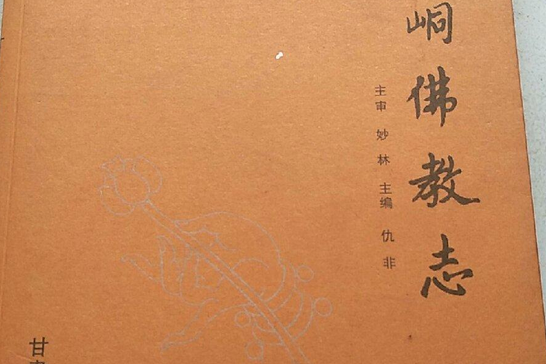 峒佛教志
主审 妙林 主编 仇非
甘